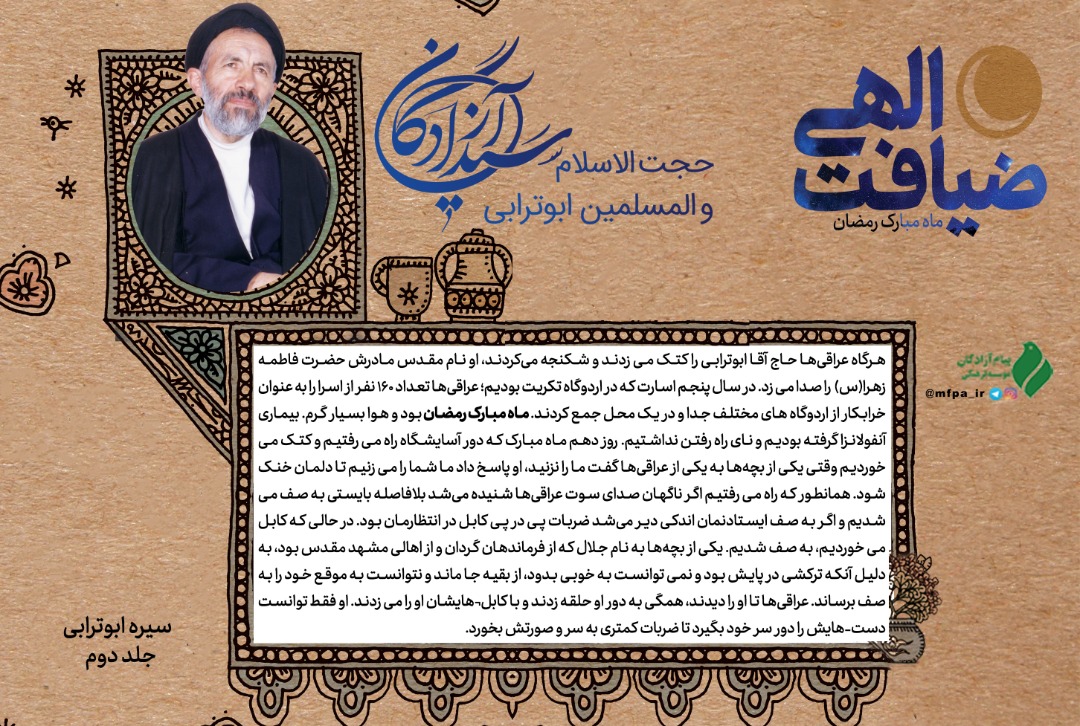 ضیافت الهی
ماه مبارک رمضان
سید آزادگان
حجت الاسلام
و المسلمین ابوترابی
پیام آزادگان
موسسه فرهنگی
@mfpa_ir
هرگاه عراقی‌ها حاج آقا ابوترابی را کتک می زدند و شکنجه می‌کردند، او نام مقدس مادرش حضرت فاطمه
زهرا(س) را صدا می زد. در سال پنجم اسارت که در اردوگاه تکریت بودیم؛ عراقی‌ها تعداد ۱۶۰ نفر از اسرا را به عنوان
خرابکار از اردوگاه های مختلف جدا و در یک محل جمع کردند. ماه مبارک رمضان بود و هوا بسیار گرم. بیماری
آنفولانزا گرفته بودیم و نای راه رفتن نداشتیم. روز دهم ماه مبارک که دور آسایشگاه راه می رفتیم و کتک می
خوردیم وقتی یکی از بچه‌ها به یکی از عراقی‌ها گفت ما را نزنید، او پاسخ داد ما شما را می زنیم تا دلمان خنک
شود. همانطور که راه می رفتیم اگر ناگهان صدای سوت عراقی‌ها شنیده می‌شد بلافاصله بایستی به صف می
شدیم و اگر به صف ایستادنمان اندکی دیر می‌شد ضربات پی در پی کابل در انتظارمان بود. در حالی که کابل
می خوردیم، به صف شدیم. یکی از بچه‌ها به نام جلال که از فرماندهان گردان و از اهالی مشهد مقدس بود، به
دلیل آنکه ترکشی در پایش بود و نمی توانست به خوبی بدود، از بقیه جا ماند و نتوانست به موقع خود را به
صف برساند. عراقی‌ها تا او را دیدند، همگی به دور او حلقه زدند و با کابل¬هایشان او را می زدند. او فقط توانست
دست-هایش را دور سر خود بگیرد تا ضربات کمتری به سر و صورتش بخورد.
سیره ابوترابی
جلد دوم